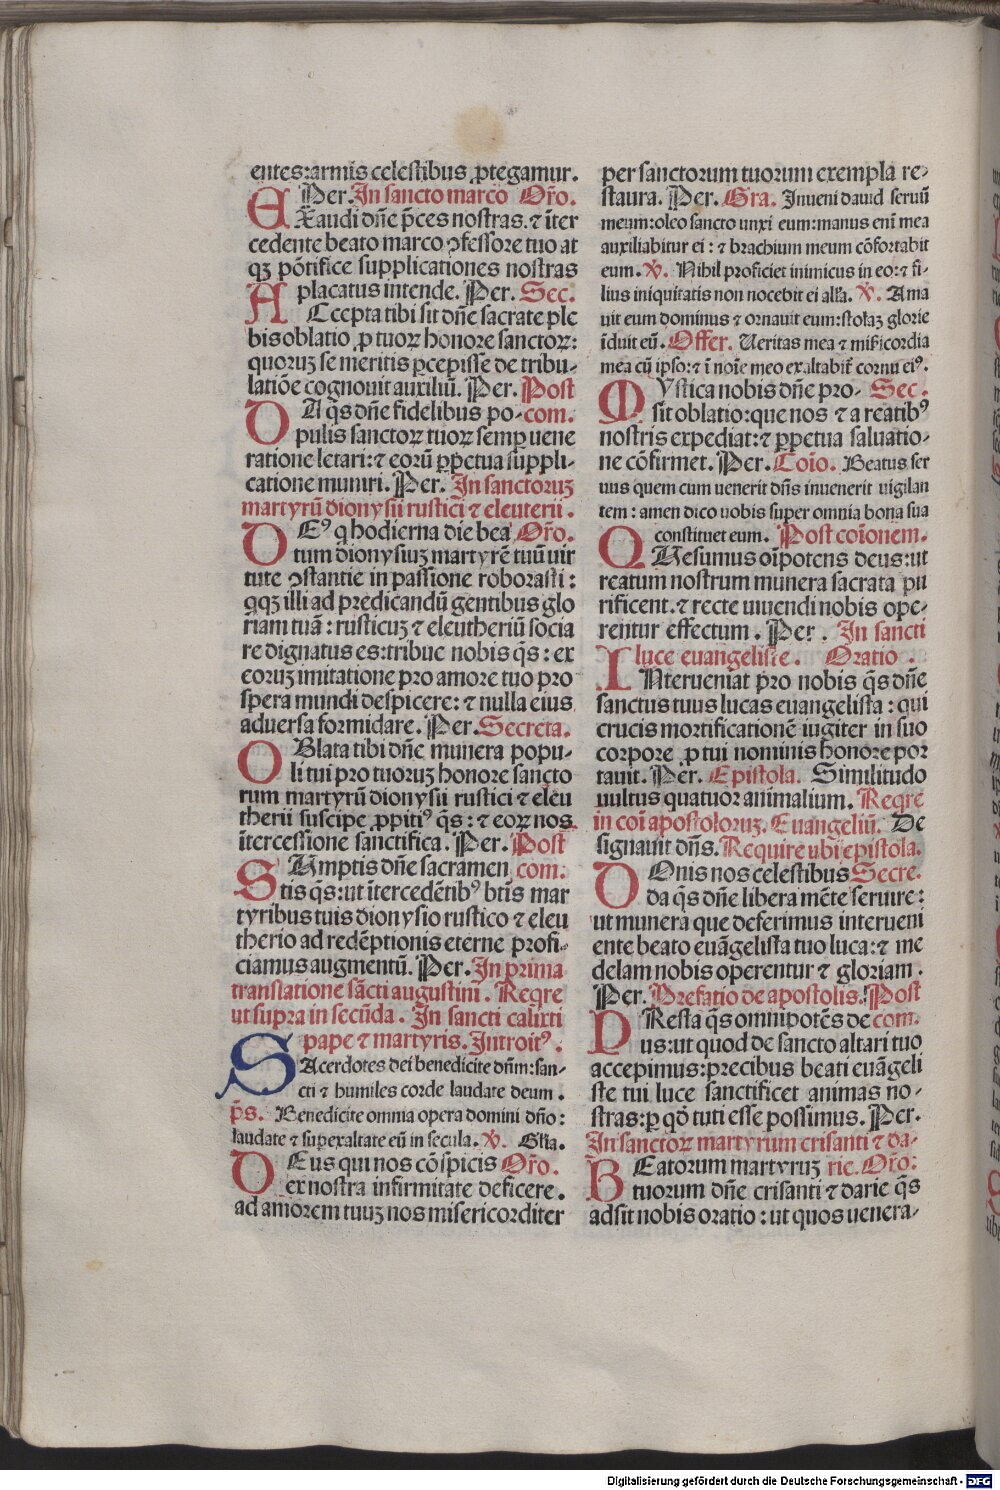 entes:armis celestibus ꝓtegamur.
Per. In sancto marco Or̃o.
EXaudi dñe p̃ces nostras. ⁊ ĩter
cedente beato marco ꝯfessore tuo at
qꝫ põtifice supplicationes nostras
placatus intende. Per. Sec.
ACcepta tibi sit dñe sacrate ple
bis oblatio ꝓ tuoꝝ honore sanctoꝝ:
quoruꝫ se meritis ꝑcepisse de tribu-
latiõe cognouit auxiliũ. Per. Post
DA q̃s dñe fidelibus po- com.
pulis sanctoꝝ tuoꝝ semꝑ uene
ratione letari: ⁊ eorũ ꝑpetua suppli-
catione muniri. Per. In sanctoruꝫ
martyrũ dionysii rustici ⁊ eleuterii.
DEꝰ q hodierna die bea Or̃o.
tum dionysiuꝫ martyrẽ tuũ uir
tute ꝯstantie in passione roborasti:
qqꝫ illi ad predicandũ gentibus glo
riam tuã: rusticuꝫ ⁊ eleutheriũ socia
re dignatus es: tribue nobis q̃s: ex
eoruꝫ imitatione pro amore tuo pro
spera mundi despicere: ⁊ nulla eius
aduersa formidare. Per. Secreta.
OBlata tibi dñe munera popu-
li tui pro tuoruꝫ honore sancto
rum martyrũ dionysii rustici ⁊ eleu
therii suscipe ꝓpitiꝰ q̃s: ⁊ eoꝝ nos
ĩtercessione sanctifica. Per. Post
SUmptis dñe sacramen com.
tis q̃s: ut ĩtercedẽtibꝰ btĩs mar
tyribus tuis dionysio rustico ⁊ eleu
therio ad redẽptionis eterne profi-
ciamus augmentũ. Per. In prima
translatione sãcti augustini. Reqre
ut supra in secũda. In sancti calixti
pape ⁊ martyris. Introitꝰ.
SAcerdotes dei benedicite dñm: san-
cti ⁊ humiles corde laudate deum.
p̃s. Benedicite omnia opera domini dño:
laudate ⁊ superexaltate eũ in secula. ℣. Gl̃ia.
DEus qui nos cõspicis Or̃o.
ex nostra infirmitate deficere.
ad amorem tuuꝫ nos misericorditer
per sanctorum tuorum exempla re-
staura. Per. Gra. Inueni dauid seruũ
meum: oleo sancto unxi eum: manus eni mea
auxiliabitur ei: ⁊ brachium meum cõfortabit
eum. ℣. Nihil proficiet inimicus in eo: ⁊ fi-
lius iniquitatis non nocebit ei all̃a. ℣. Ama
uit eum dominus ⁊ ornauit eum: stolaꝫ glorie
ĩduit eũ. Offer. Ueritas mea ⁊ mĩsicordia
mea cũ ipso: ⁊ ĩ noĩe meo exaltabit̃ cornu eiꝰ.
MYstica nobis dñe pro- Sec.
sit oblatio: que nos ⁊ a reatibꝰ
nostris expediat: ⁊ ꝑpetua saluatio-
ne cõfirmet. Per. Coĩo. Beatus ser
uus quem cum uenerit dñs inuenerit uigilan
tem: amen dico uobis super omnia bona sua
constituet eum. Post coĩonem.
QUesumus oĩpotens deus: ut
reatum nostrum munera sacrata pu
rificent. ⁊ recte uiuendi nobis ope-
rentur effectum. Per. In sancti
luce euangeliste. Oratio.
INterueniat pro nobis q̃s dñe
sanctus tuus lucas euangelista: qui
crucis mortificationẽ iugiter in suo
corpore ꝓ tui nominis honore por
tauit. Per. Epistola. Similitudo
uultus quatuor animalium. Reqre
in coĩ apostoloruꝫ. Euangeliũ. De
signauit dñs. Require ubi epistola.
DOnis nos celestibus Secre.
da q̃s dñe libera mẽte seruire:
ut munera que deferimus interueni
ente beato euãgelista tuo luca: ⁊ me
delam nobis operentur ⁊ gloriam.
Per. Prefatio de apostolis. Post
PResta q̃s omnipotẽs de com.
us: ut quod de sancto altari tuo
accepimus: precibus beati euãgeli
ste tui luce sanctificet animas no-
stras: ꝑ qõ tuti esse possimus. Per.
In sanctoꝝ martyrum crisanti ⁊ da-
BEatorum martyruꝫ rie. Or̃o:
tuorum dñe crisanti ⁊ darie q̃s
adsit nobis oratio: ut quos uenera-
Digitalisierung gefördert durch die Deutsche Forschungsgemeinschaft - DFG